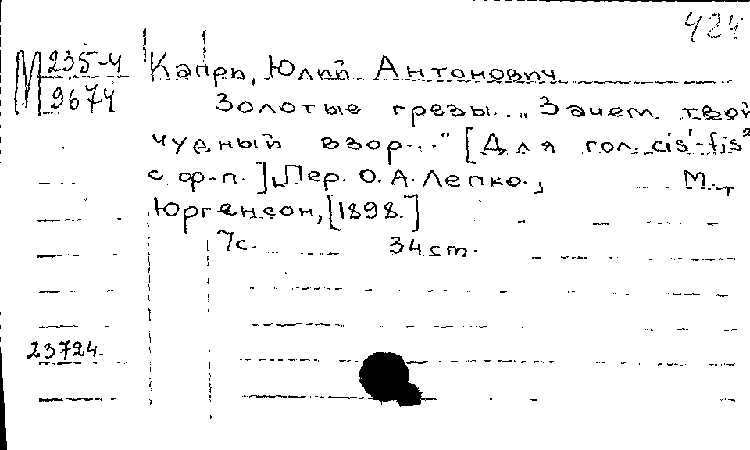 424
М 235-4
9674
Капри, Юлий Антонович
Золотые грезы... "Зачем твой
чудный взор..." [Для гол. cis¹-fis²
с ф-п.] Пер. О.А. Лепко.,   М.,
Юргенсон, [1898.]
7с.   34 ст.
23724.